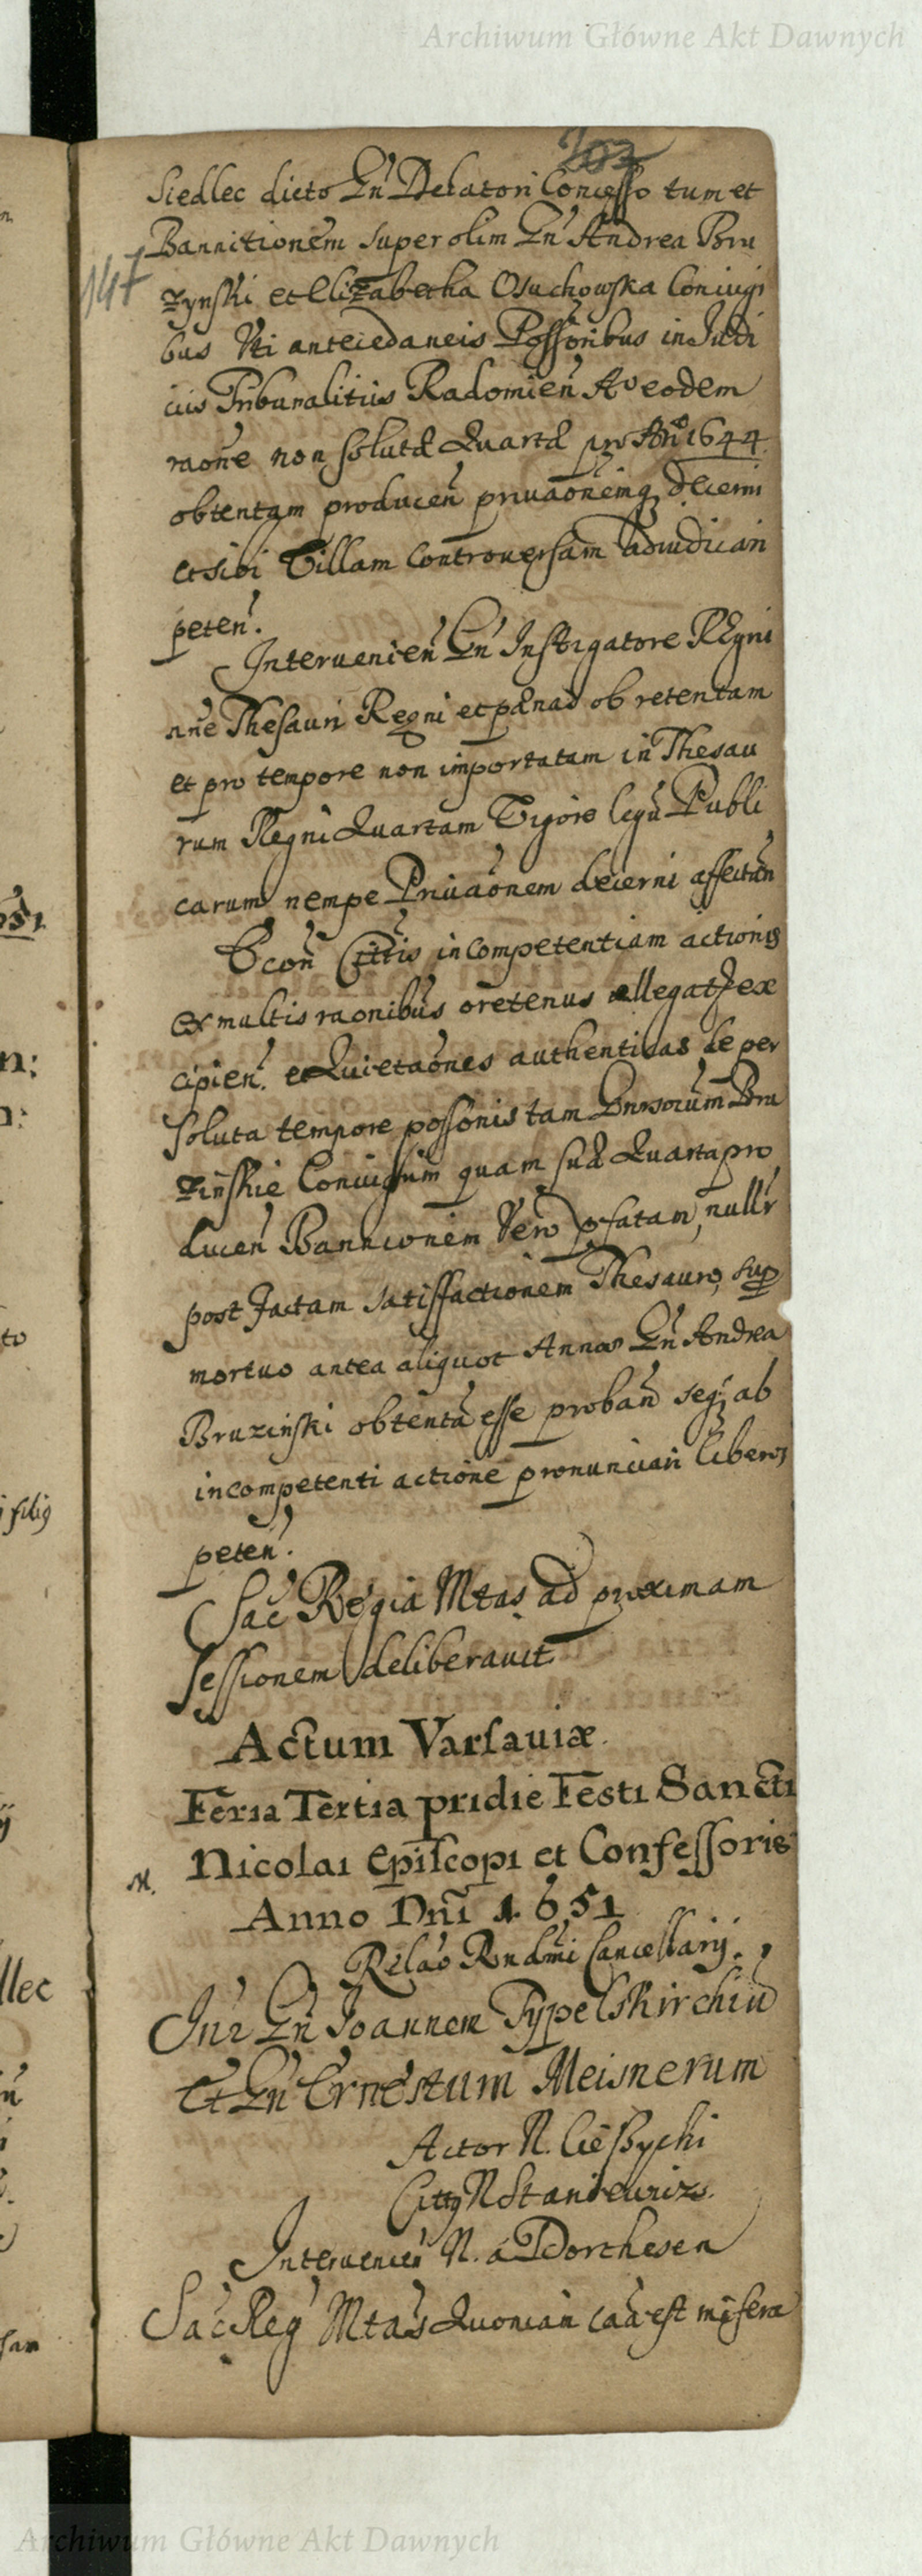 Archiwum Główne Akt Dawnych
202
Siedlec dicto Gn Delatori Concesso tum et
Bannitionem super olim Gn Andrea Bru
147
zynski et Elizabetha Osuchowska Coniugi
bus Uti antecedaneis Possoribus in Judi
ciis Tribunalitiis Radomien Ao eodem
raone non solutæ Quartæ pro Ano 1644
obtentam producen priuaonemq decerni
et sibi Villam controuersam adiudicari
peten.
Interuenien Gn Instigatore Regni
nne Thesauri Regni et pænas ob retentam
et pro tempore non importatam in Thesau
rum Regni Quartam Vigore legu Publi
carum nempe Priuaonem decerni affectan
Econ Cittis incompetentiam actionis
ex multis raonibus oretenus allegat ex
cipien. et Quietaones authenticas de per
soluta tempore possonis tam Gnrsorum Bru
zinskie Coniugum quam sua Quarta pro
ducen Bannionem Vero pfatam, nullr
post factam satisfactionem Thesauro, sup
mortuo antea aliquot Annos Gn Andrea
Bruzinski obtenta esse proban seq ab
incompetenti actione pronunciari liberos
peten.
Sac Regia Mtas ad proximam
sessionem deliberauit
Actum Varsauiæ.
Feria Tertia pridie Festi Sancti
Nicolai Episcopi et Confessoris
M.
Anno Dni 1651
Relao Rendmi Cancellarij.
Int Gn Joannem Typelskirchiu
Et Gn Ernestum Meisnerum
Actor N. Cießychi
Citty N Staniewicz.
Interuenien N. a Dorthesen
Sac Reg Mtas Quoniam caa est misera
Archiwum Główne Akt Dawnych